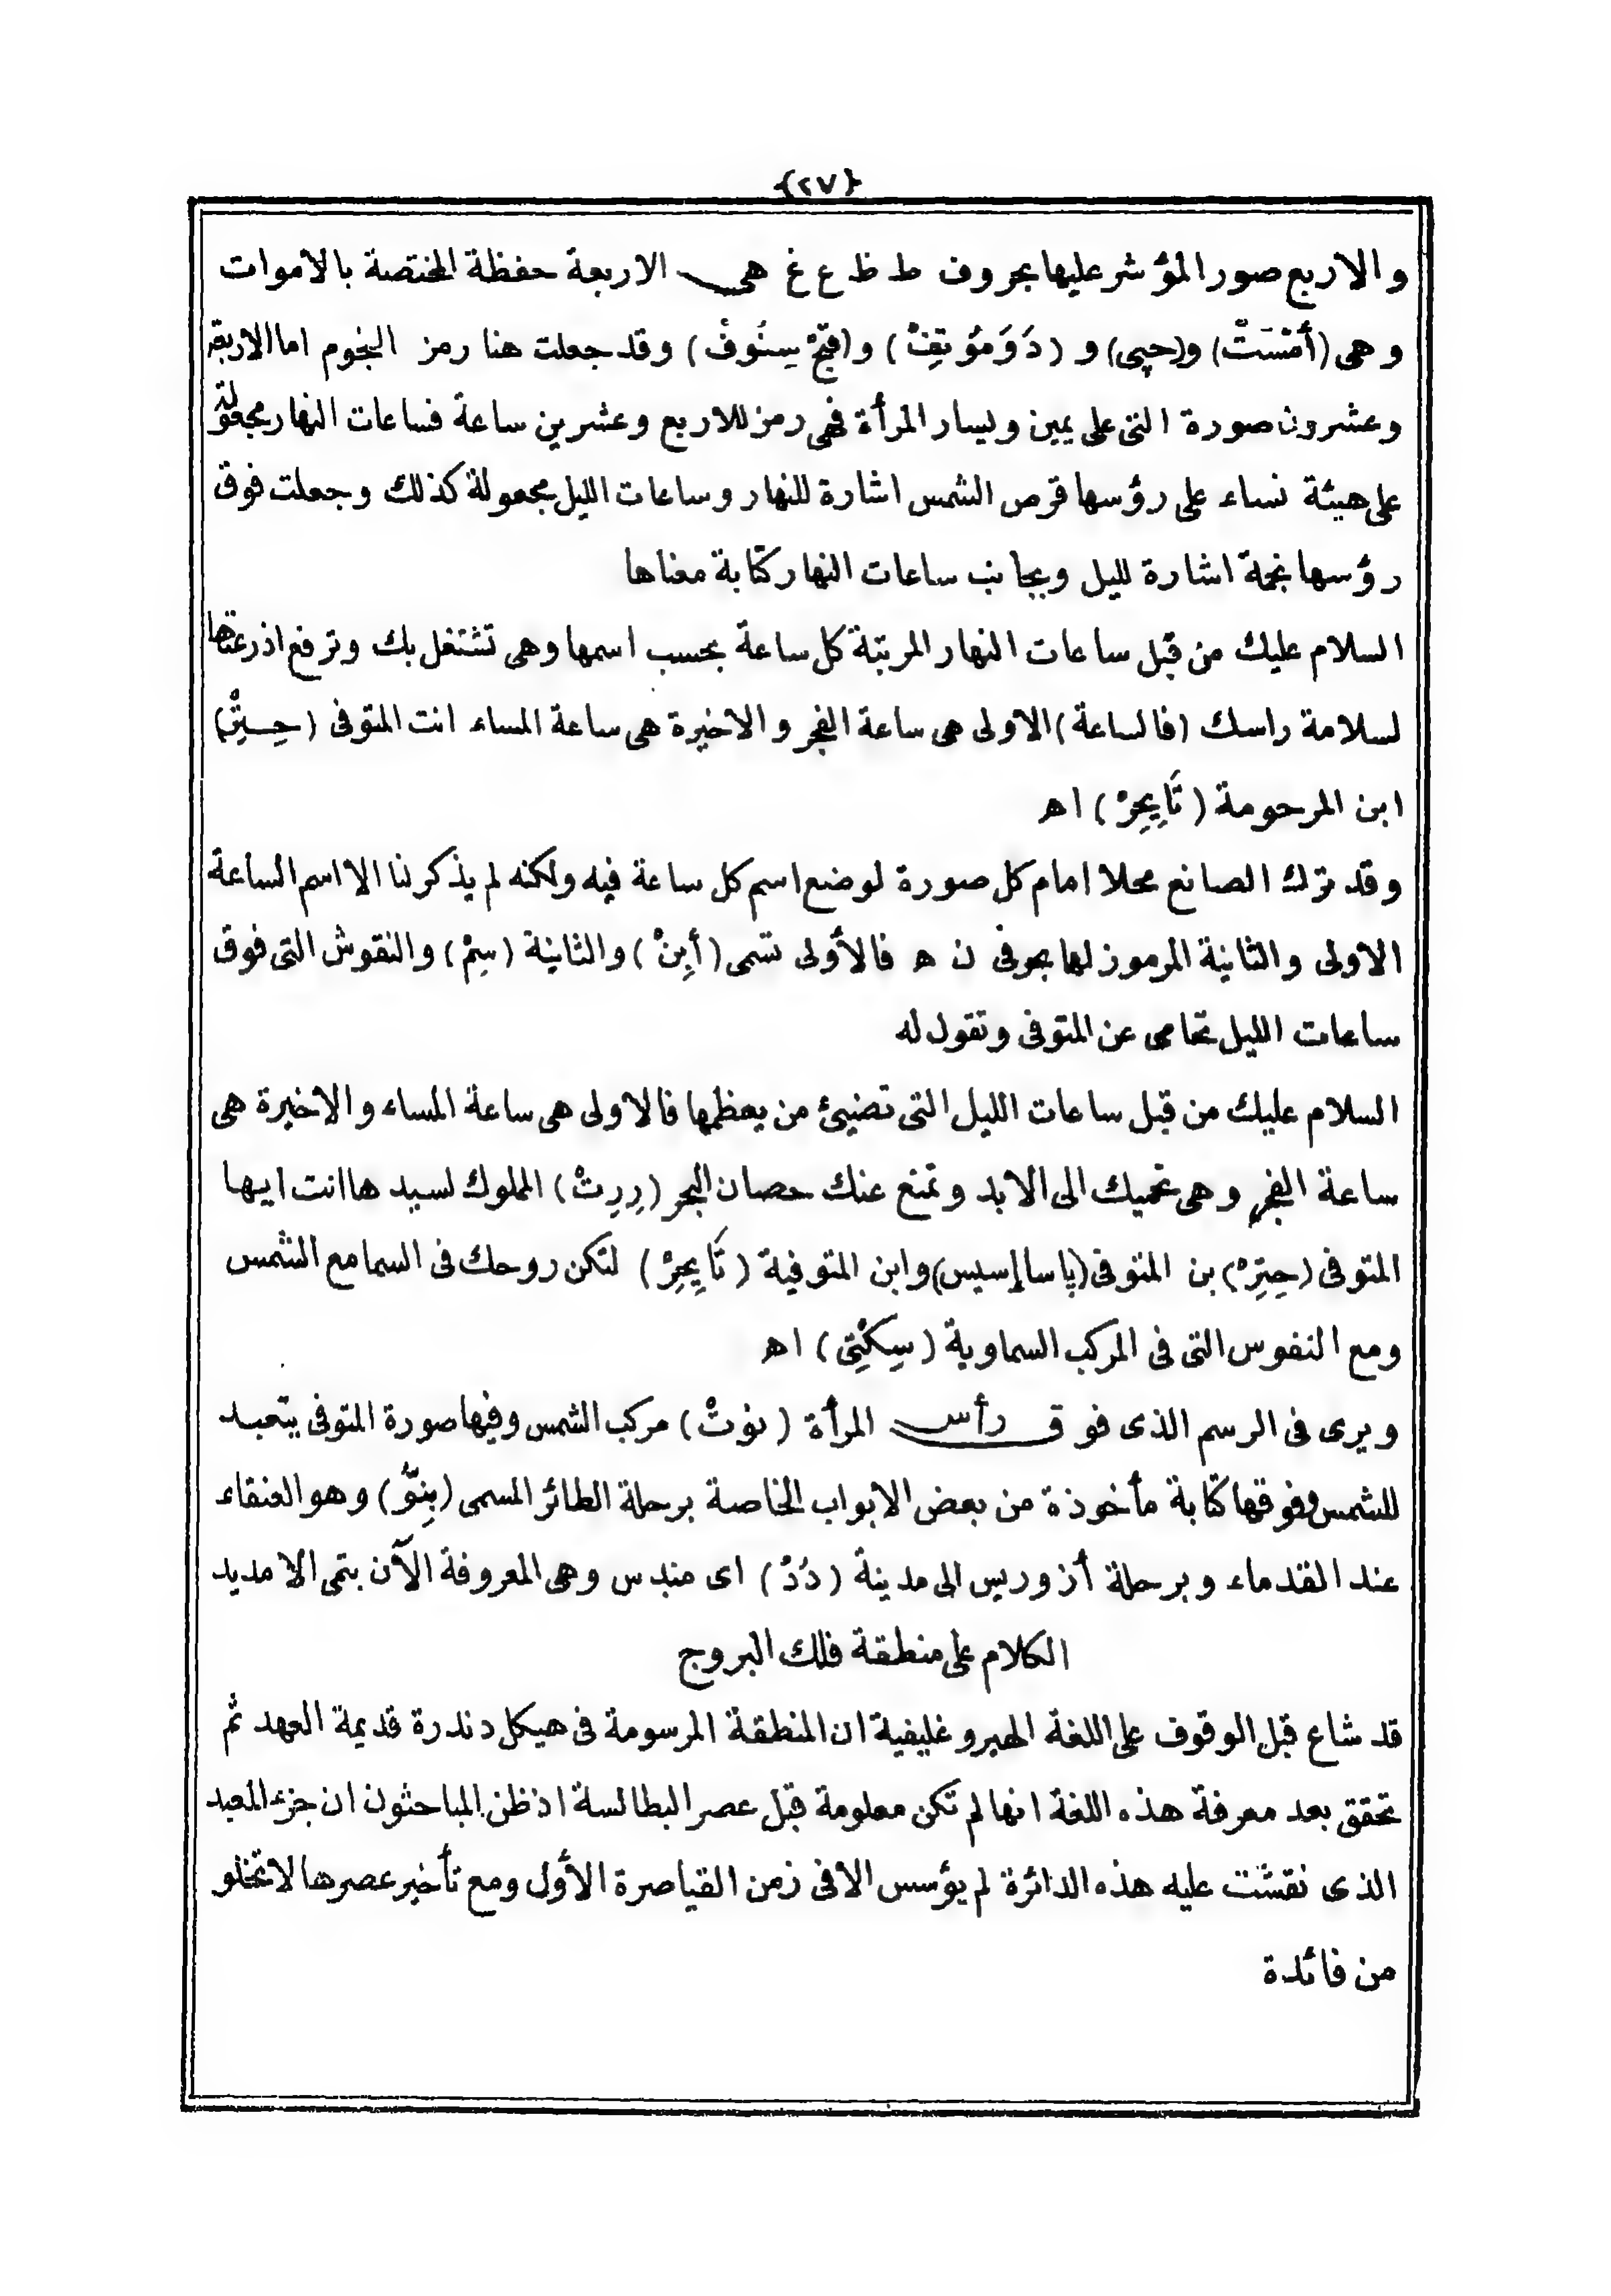 {٢٧}
والاربع صور المؤشر عليها بحروف ط ظ ع غ هى الاربعة حفظة المختصة بالاموات
وهى (أَمْسَتْ) و(حپى) و (دَوَمُوتِفْ) و(قِبْحْ سِنُوفْ) وقد جعلت هنا رمز النجوم اما الاربعة
وعشرون صورة التى على يمين ويسار المرأة فهى رمز للاربع وعشرين ساعة فساعات النهار مجعولة
على هيئة نساء على رؤسها قرص الشمس اشارة للنهار وساعات الليل مجعولة كذلك وجعلت فوق
رؤسها نجمة اشارة لليل وبجانب ساعات النهار كتابة معناها
السلام عليك من قبل ساعات النهار المرتبة كل ساعة بحسب اسمها وهى تشتغل بك وترفع اذرعتها
لسلامة راسك (فالساعة) الاولى هى ساعة الفجر والاخيرة هى ساعة المساء انت المتوفى (حِـتِرْ)
ابن المرحومة (تَايِحِرْ) اه
وقد ترك الصانع محلا امام كل صورة لوضع اسم كل ساعة فيه ولكنه لم يذكر لنا الا اسم الساعة
الاولى والثانية المرموز لها بحرفى ن ه فالأولى تسمى (أبِنْ) والثانية (سِمْ) والنقوش التى فوق
ساعات الليل تحامى عن المتوفى وتقول له
السلام عليك من قبل ساعات الليل التى تضيئ من يعظمها فالاولى هى ساعة المساء والاخيرة هى
ساعة الفجر وهى تحميك الى الابد وتمنع عنك حصان البحر (رِرِتْ) المملوك لسيد ها انت ايها
المتوفى (حِتِرْ) بن المتوفى (پاسا إسيس) وابن المتوفية (تَايِحِرْ) لتكن روحك فى السما مع الشمس
ومع النفوس التى فى المركب السماوية (سِكْتِى) اه
ويرى فى الرسم الذى فوق رأس المرأة (نوُتْ) مركب الشمس وفيها صورة المتوفى يتعبد
للشمس وفوقها كتابة مأخوذة من بعض الابواب الخاصة برحلة الطائر المسمى (بِنوّ) وهو العنقاء
عند القدماء وبرحلة أزوريس الى مدينة (دُدْ) اى مندس وهى المعروفة الآن بتمى الامديد
الكلام على منطقة فلك البروج
قد شاع قبل الوقوف على اللغة الهيروغليفية ان المنطقة المرسومة فى هيكل دندرة قديمة العهد ثم
تحقق بعد معرفة هذه اللغة انها لم تكن معلومة قبل عصر البطالسة اذ ظن المباحثون ان جزء المعبد
الذى نقشت عليه هذه الدائرة لم يؤسس الا فى زمن القياصرة الأول ومع تأخير عصرها لا تخلو
من فائدة